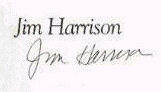 Jim Harrison
Jim Harrison